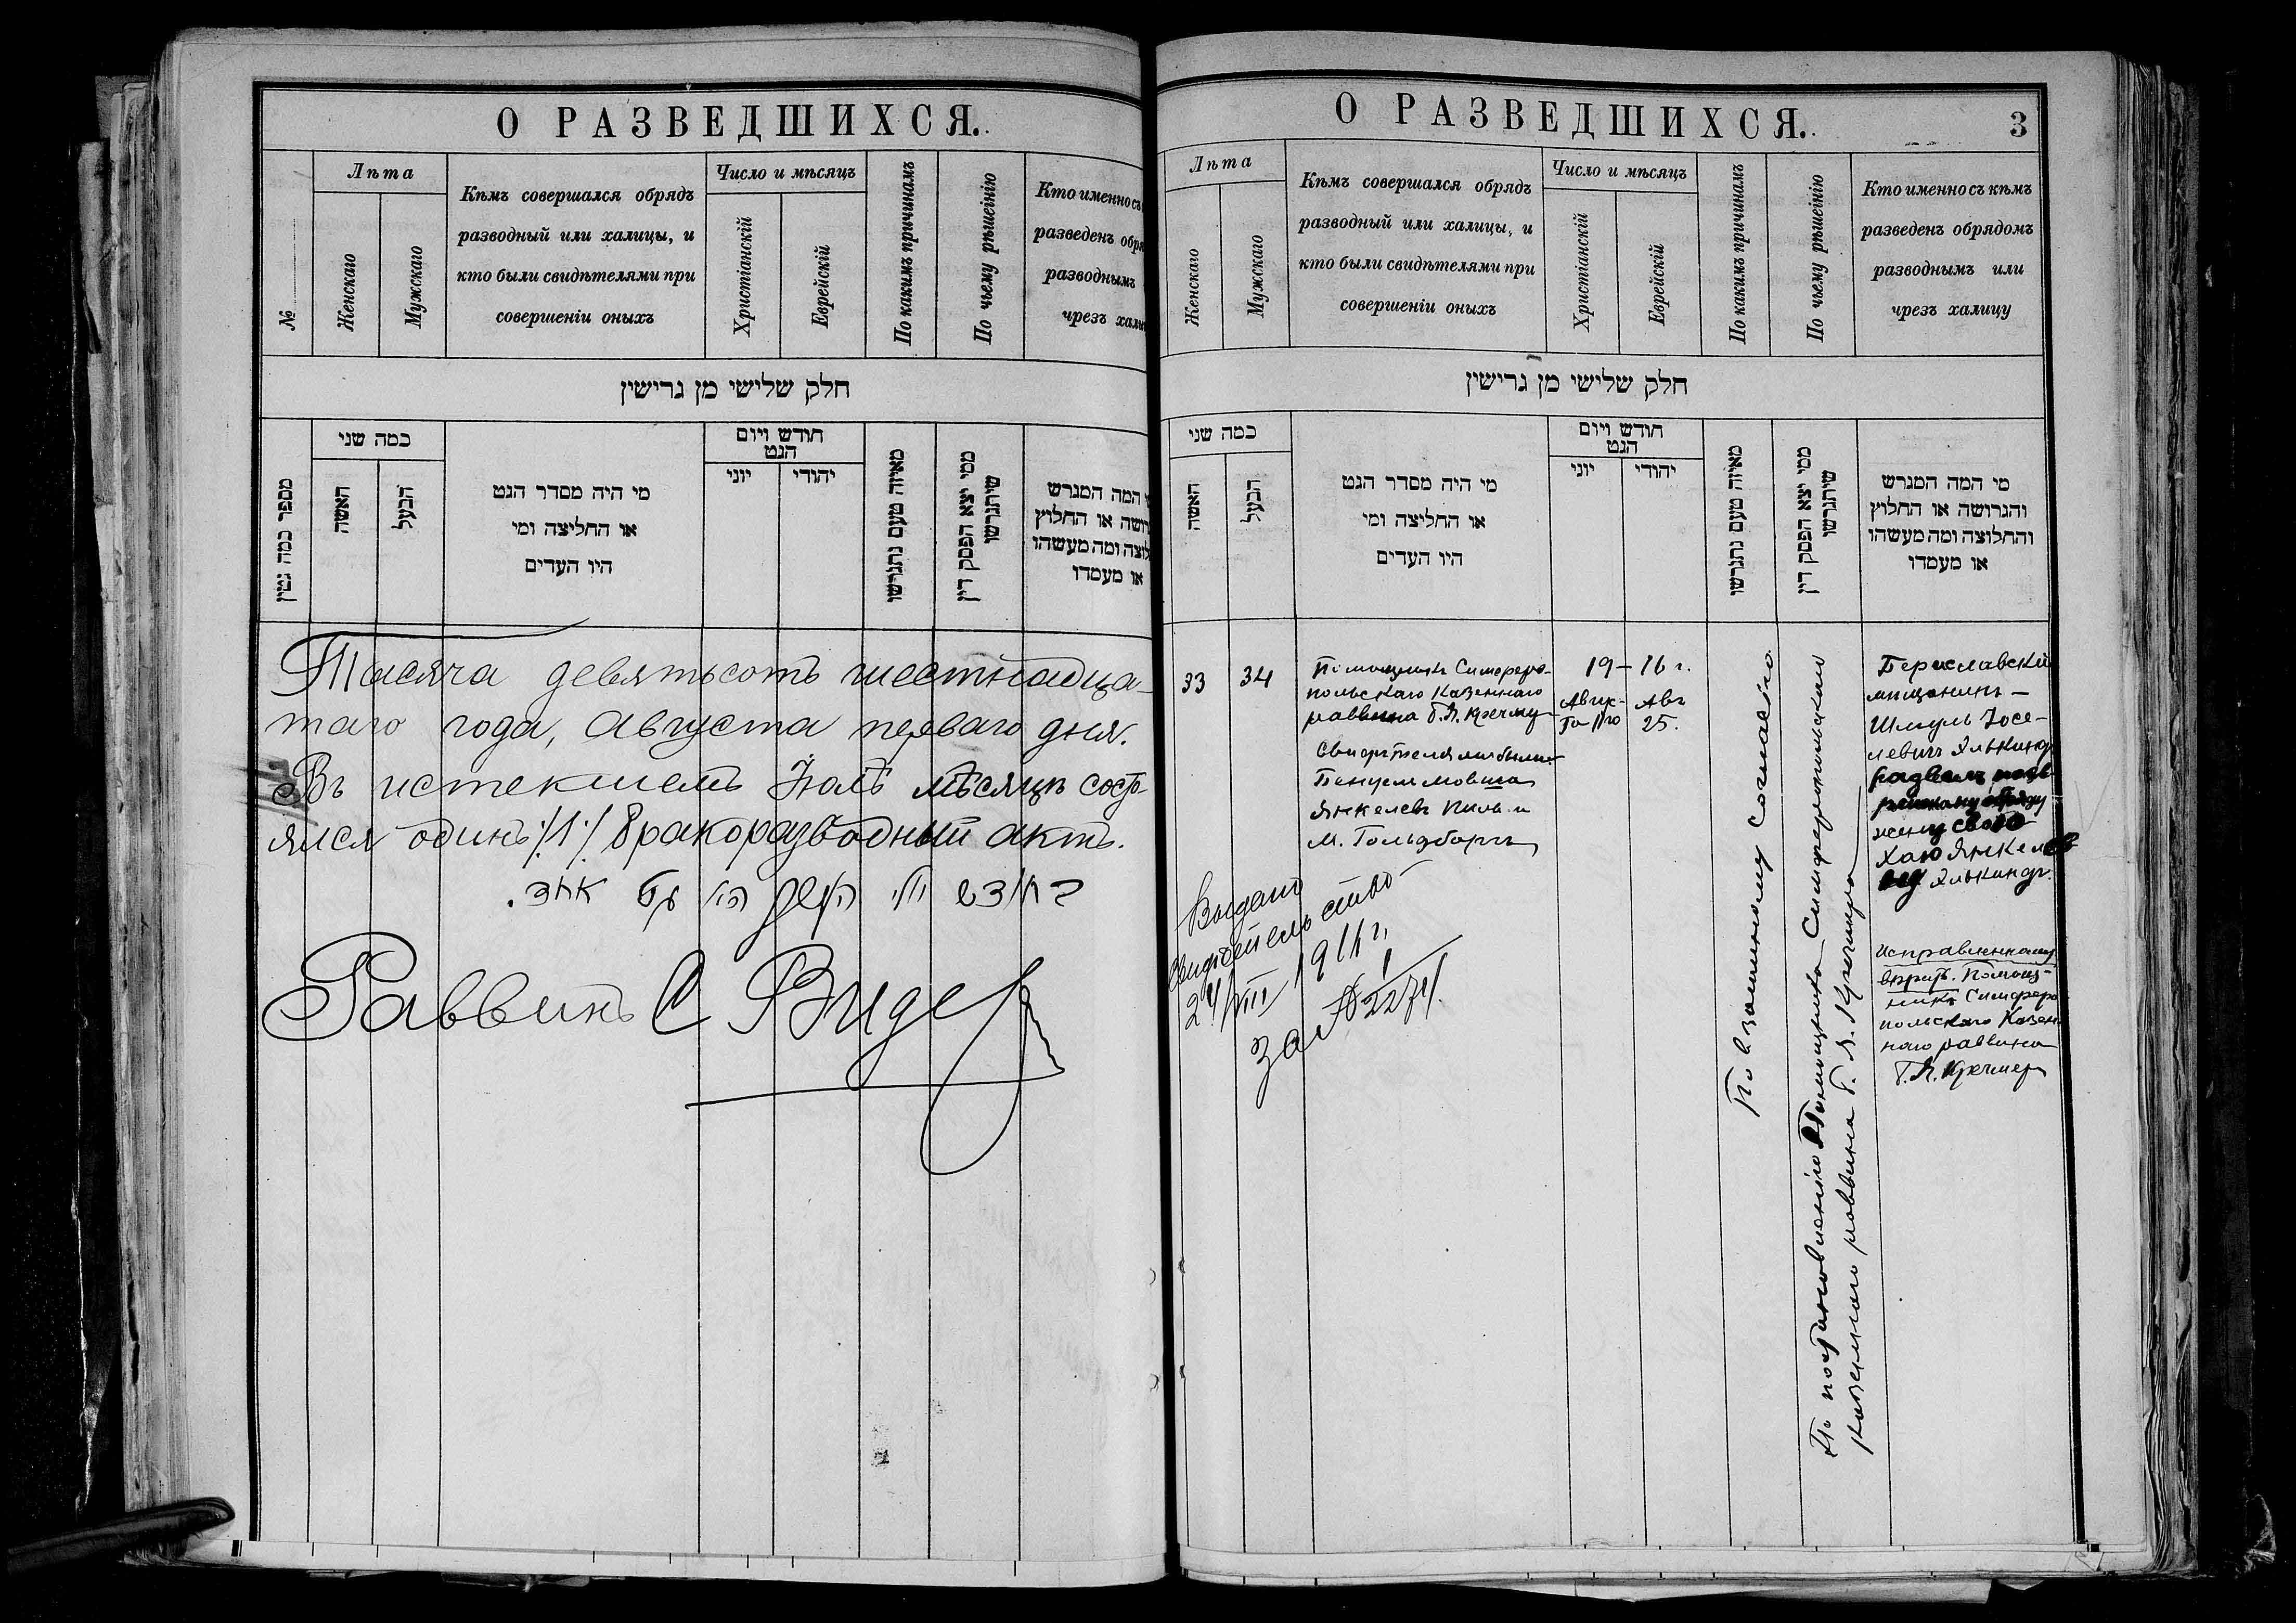 О РАЗВЕДШИХСЯ.
№
Лѣта
Женскаго
Мужскаго
Кѣмъ совершался обрядъ
разводный или халицы, и
кто были свидѣтелями при
совершеніи оныхъ
Число и мѣсяцъ
Христіанскій
Еврейскій
По какимъ причинамъ
По чьему рѣшеінію
Кто именно съ
разведенъ обря
разводнымъ
чрезъ хали
חלק שלישי מן גרישין
מספר כמה גטין
כמה שני
האשה
הבעל
מי היה מסדר הגט
או החליצה ומי
היו העדים
חודש ויום
הגט
יוני
יהודי
מאיזה טעם נתגרשו
ממי יצא הפסק דין
שיתגרשו
המה המגרש
רושה או החלוץ
לוצה ומה מעשהו
או מעמדו
Тысяча девятьсотъ шестнадца-
таго года, Августа перваго дня.
Въ истекшемъ Іюлѣ мѣсяцѣ состо-
ялся одинъ /1/ бракоразводный актъ.
בחודש יולי היה גט אחד.
Раввинъ С Видер
О РАЗВЕДШИХСЯ.
3
Лѣта
Женскаго
Мужскаго
Кѣмъ совершался обрядъ
разводный или халицы, и
кто были свидѣтелями при
совершеніи оныхъ
Число и мѣсяцъ
Христіанскій
Еврейскій
По какимъ причинамъ
По чьему рѣшеінію
Кто именно съ кѣмъ
разведенъ обрядомъ
разводнымъ или
чрезъ халицу
חלק שלישי מן גרישין
כמה שני
האשה
הבעל
מי היה מסדר הגט
או החליצה ומי
היו העדים
חודש ויום
הגט
יוני
יהודי
מאיזה טעם נתגרשו
ממי יצא הפסק דין
שיתגרשו
מי המה המגרש
והגרושה או החלוץ
והחלוצה ומה מעשהו
או מעמדו
33
34
Помощникъ Симферо-
польскаго Казеннаго
раввина Г.Я. Кречмер
Свидѣтелями были
Бенцель Мовша
Янкелевъ Пиль и
М. Гольдборгъ
19-16 г.
Авгус-
та 11го
Авг
25.
По взаимному согласію
По постановленію Помощника Симферопольскаго
Казеннаго раввина Г. Я. Кречмера
Бериславскій
мѣщанинъ
Шмуль Іосе-
левичъ Элькинд
развелъ по ев
рейскому обряду
жену свою
Хаю Янкелев
Элькиндъ.
Исправленному
вѣрить. Помощ-
никъ Симферо
польскаго Казен
наго раввина
Г.Я. Кречмеръ
Выдано
свидѣтельство
24/VIII 1916 г.
за № 2274.